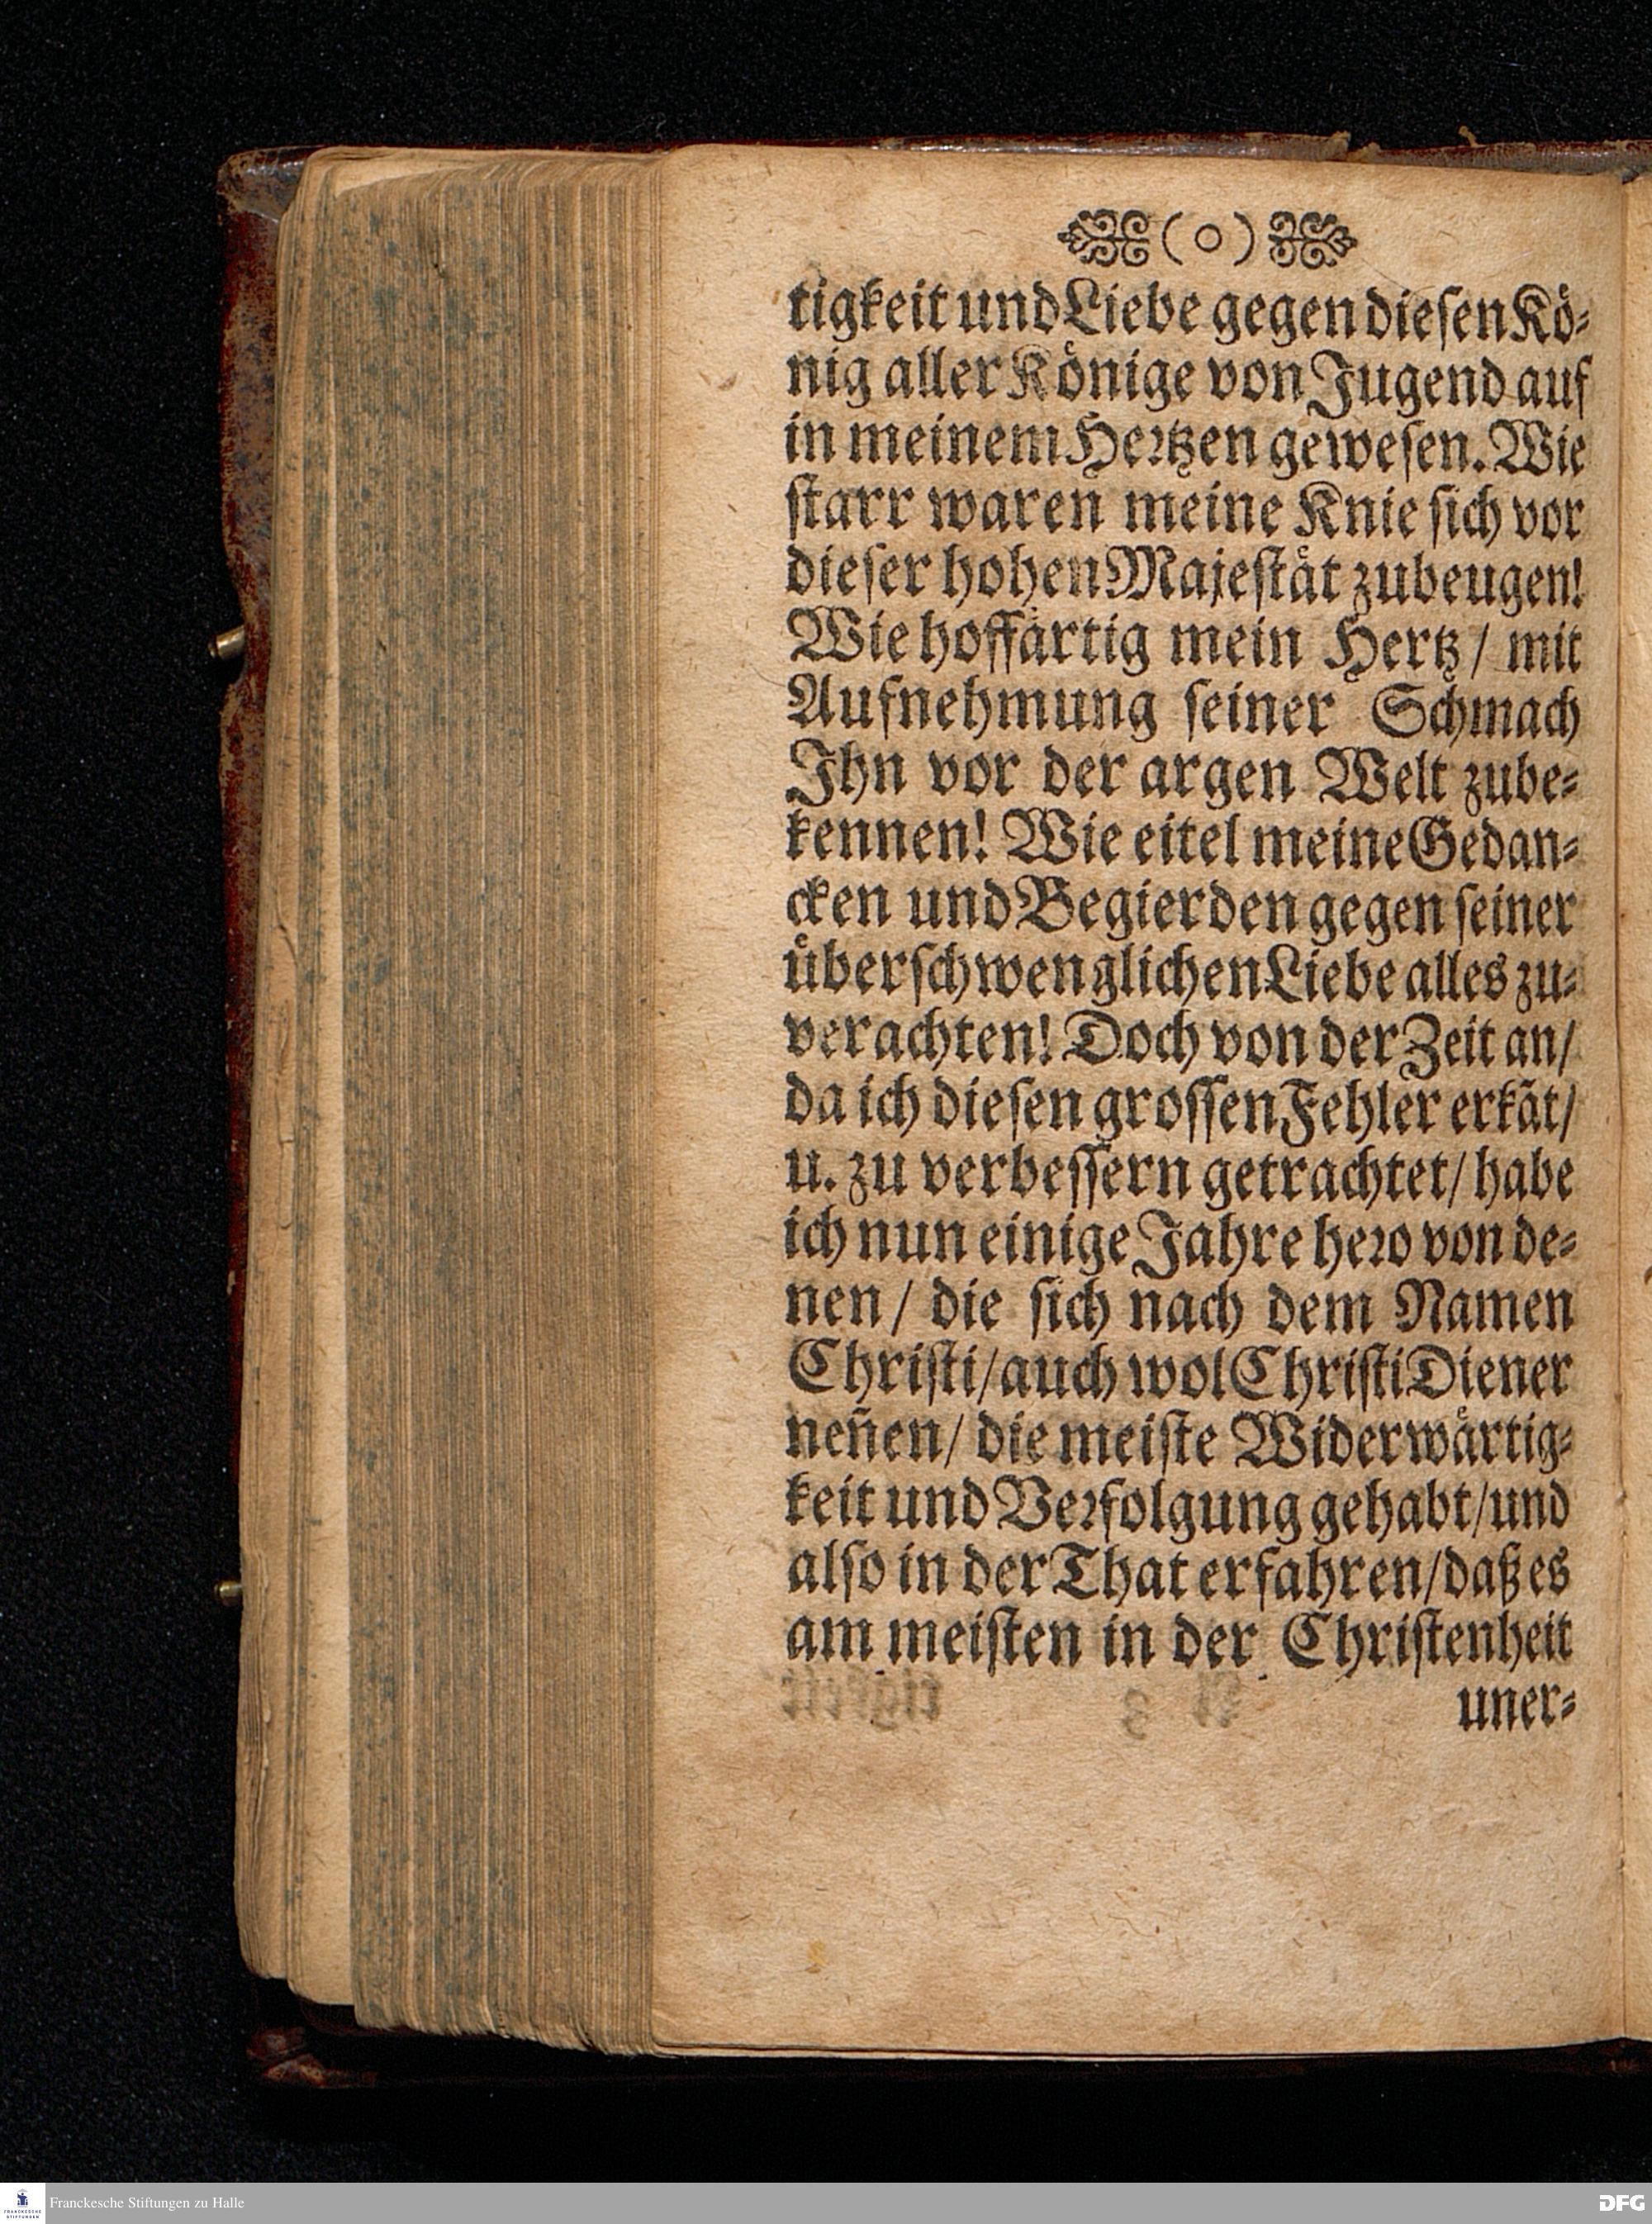 ( o )
tigkeit und Liebe gegen dieſen Koͤ⸗
nig aller Koͤnige von Jugend auf
in meinem Hertzen geweſen. Wie
ſtarr waren meine Knie ſich vor
dieſer hohen Majeſtaͤt zubeugen!
Wie hoffaͤrtig mein Hertz / mit
Aufnehmung ſeiner Schmach
Ihn vor der argen Welt zube⸗
kennen! Wie eitel meine Gedan⸗
cken und Begierden gegen ſeiner
uͤberſchwenglichen Liebe alles zu⸗
verachten! Doch von der Zeit an/
da ich dieſen groſſen Fehler erkāt/
u. zu verbeſſern getrachtet/ habe
ich nun einige Jahre heꝛo von de⸗
nen / die ſich nach dem Namen
Chriſti/ auch wol Chriſti Diener
nen̄en/ die meiſte Widerwaͤrtig⸗
keit und Veꝛfolgung gehabt/ und
alſo in der That erfahren/ daß es
am meiſten in der Chriſtenheit
uner⸗
Franckesche Stiftungen zu Halle
FRANCKESCHE STIFTUNGEN
DFG